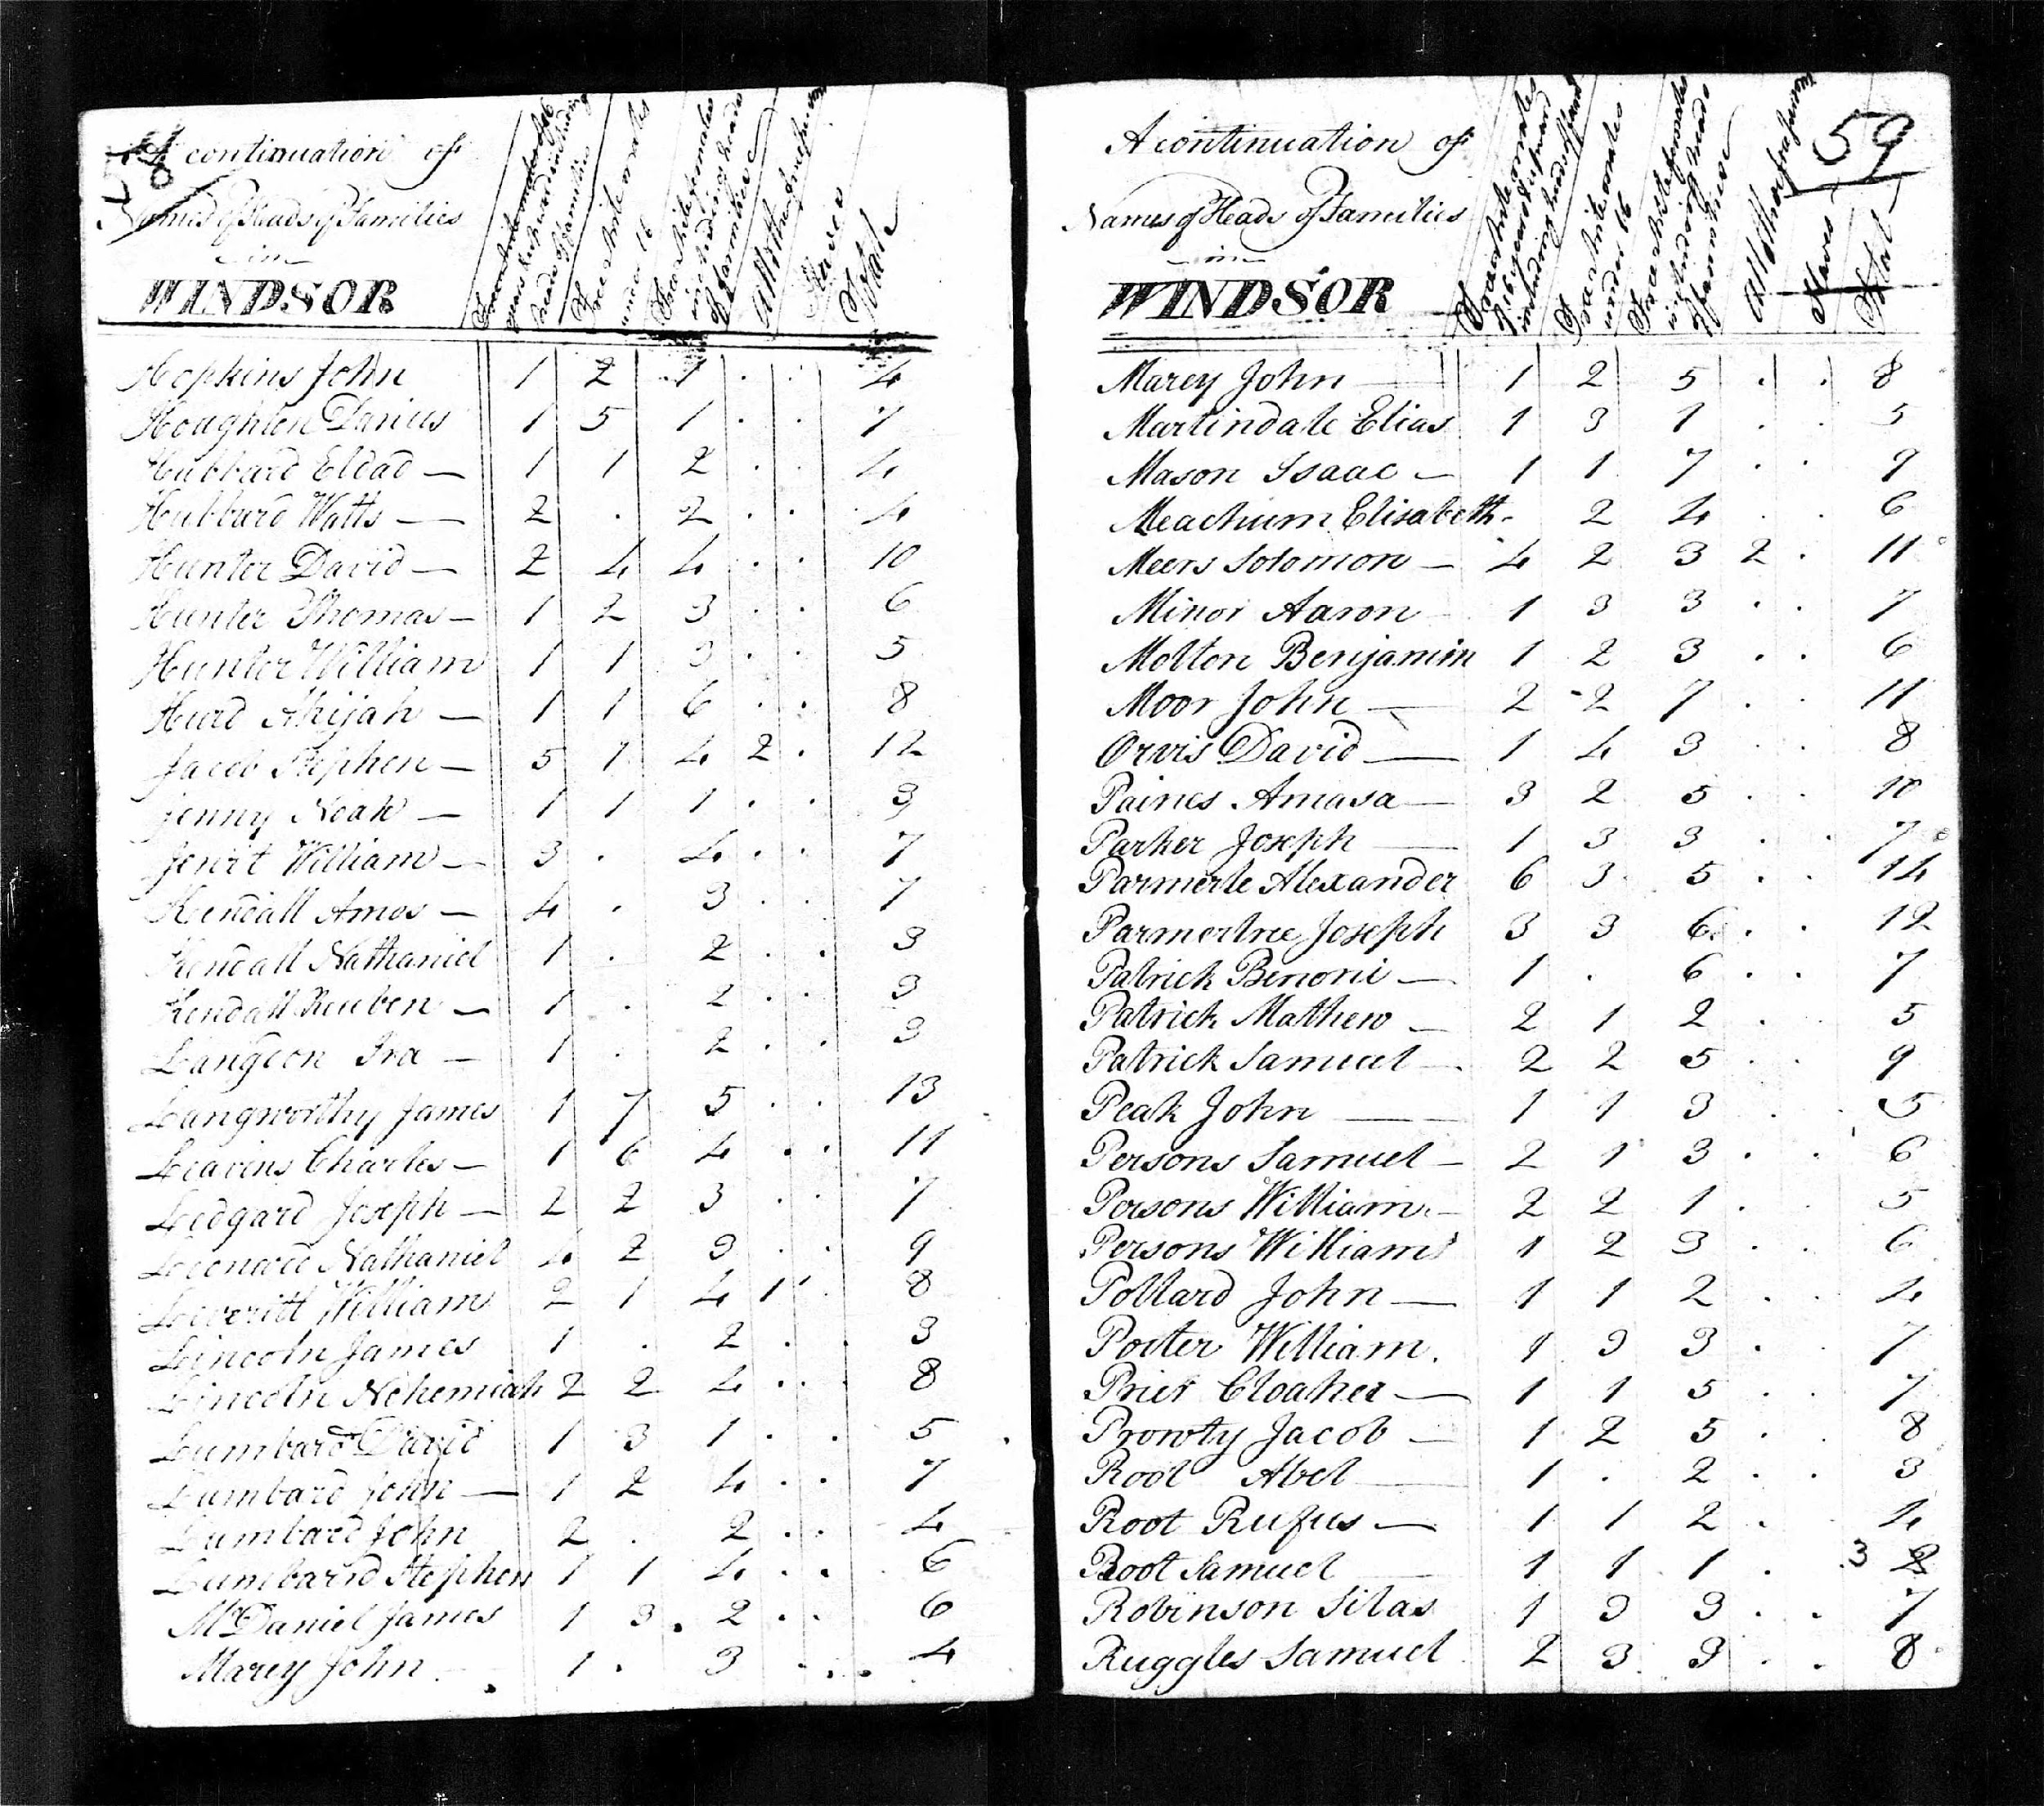 A continuation of
Names of Heads of Families
in
WINDSOR
Free white males of 16
years & upward including
heads of families
Free white males
under 16
Free white females
including heads
of families
All other free persons
Slaves
Total
Hopkins John 1 2 1 . . 4
Houghton Darius 1 5 1 . . 7
Hubbard Eldad — 1 1 2 . . 4
Hubbard Watts — 2 . 2 . . 4
Hunter David — 2 4 4 . . 10
Hunter Thomas — 1 2 3 . . 6
Hunter William 1 1 3 . . 5
Hurd Ahijah — 1 1 6 . . 8
Jacob Stephen — 5 1 4 2 . 12
Jenny Noah — 1 1 1 . . 3
William — 3 . 4 . . 7
Kendall Amos — 4 . 3 . . 7
Kendall Nathaniel 1 . 2 . . 3
Kendall Reuben — 1 . 2 . . 3
Langdon Ira — 1 . 2 . . 3
Langworthy James 1 7 5 . . 13
Leavens Charles — 1 6 4 . . 11
Ledgard Joseph — 2 2 3 . . 7
Nathaniel 4 2 3 . . 9
Leveritt William 2 1 4 1 . 8
Lincoln James 1 . 2 . . 3
Lincoln Nehemiah 2 2 4 . . 8
Lumbard David 1 3 1 . . 5
Lumbard John — 1 2 4 . . 7
Lumbard John 2 . 2 . . 4
Lumbard Stephen 1 1 4 . . 6
McDaniel James 1 3 . 2 . . 6
Marcy John 1 . 3 . . 4
59
A continuation of
Names of Heads of Families
in
WINDSOR
Free white males
of 16 years & upward
including heads of families
Free white males
under 16
Free white females
including heads
of families
All other free persons
Slaves
Total
Marcy John — 1 2 5 . . 8
Martindale Elias 1 3 1 . . 5
Mason Isaac — 1 1 7 . . 9
Meachum Elisabeth . 2 4 . . 6
Meers Solomon — 4 2 3 2 . 11
Minor Aaron 1 3 3 . . 7
Molton Benjamin 1 2 3 . . 6
Moor John — 2 2 7 . . 11
Orvis David — 1 4 3 . . 8
Paines Amasa — 3 2 5 . . 10
Parker Joseph — 1 3 3 . . 7
Parmerle Alexander 6 3 5 . . 14
Parmertree Joseph 3 3 6 . . 12
Patrick Benoni — 1 . 6 . . 7
Patrick Mathew — 2 1 2 . . 5
Patrick Samuel — 2 2 5 . . 9
Peak John — 1 1 3 . . 5
Persons Samuel — 2 1 3 . . 6
Persons William — 2 2 1 . . 5
Persons William 1 2 3 . . 6
Pollard John — 1 1 2 . . 4
Porter William . 1 3 3 . . 7
Priest Cloaher — 1 1 5 . . 7
Prowty Jacob — 1 2 5 . . 8
Root Abel — 1 . 2 . . 3
Root Rufus — 1 1 2 . . 4
Root Samuel — 1 1 1 . . 3
Robinson Silas 1 3 3 . . 7
Ruggles Samuel 2 3 3 . . 8